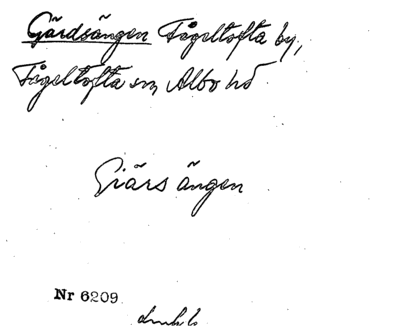 Gärdsängen Fågeltofta by,
Fågeltofta sn Albo hd
Giärs ängen
Nr 6209